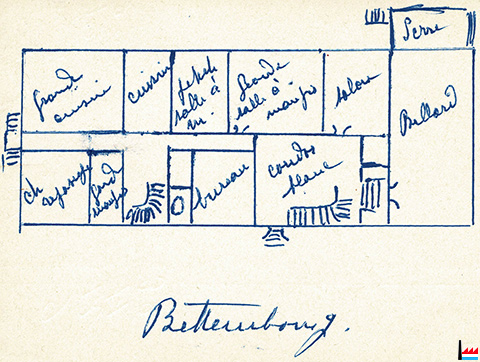 Serre
grande
cuisine
cuisine
petite
salle à
m.
grande
salle à
manger
salon
Billard
ch
repassage
gard
manger
bureau
corridor
blanc
Bettembourg.